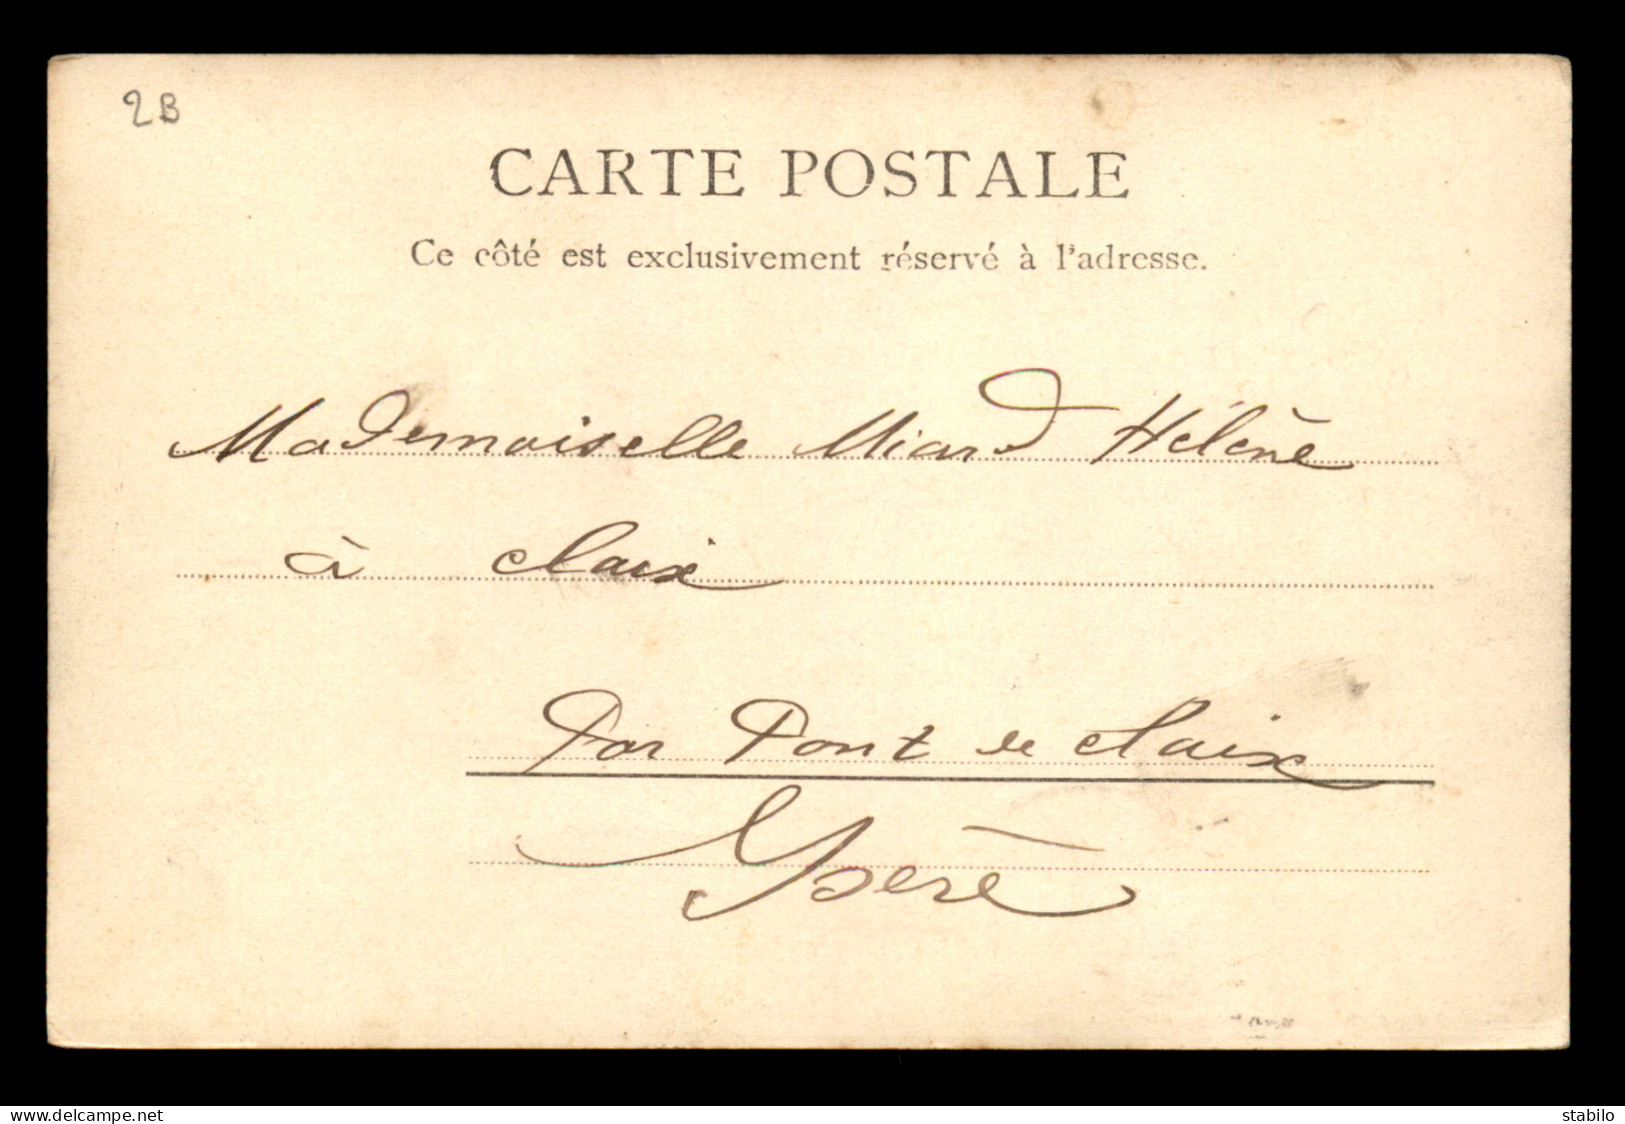 2B
CARTE POSTALE
Ce côté est exclusivement réservé à l'adresse.
Mademoiselle Miard Hélène
à claix
Par Pont de claix
Ysère
www.delcampe.net
stabilo